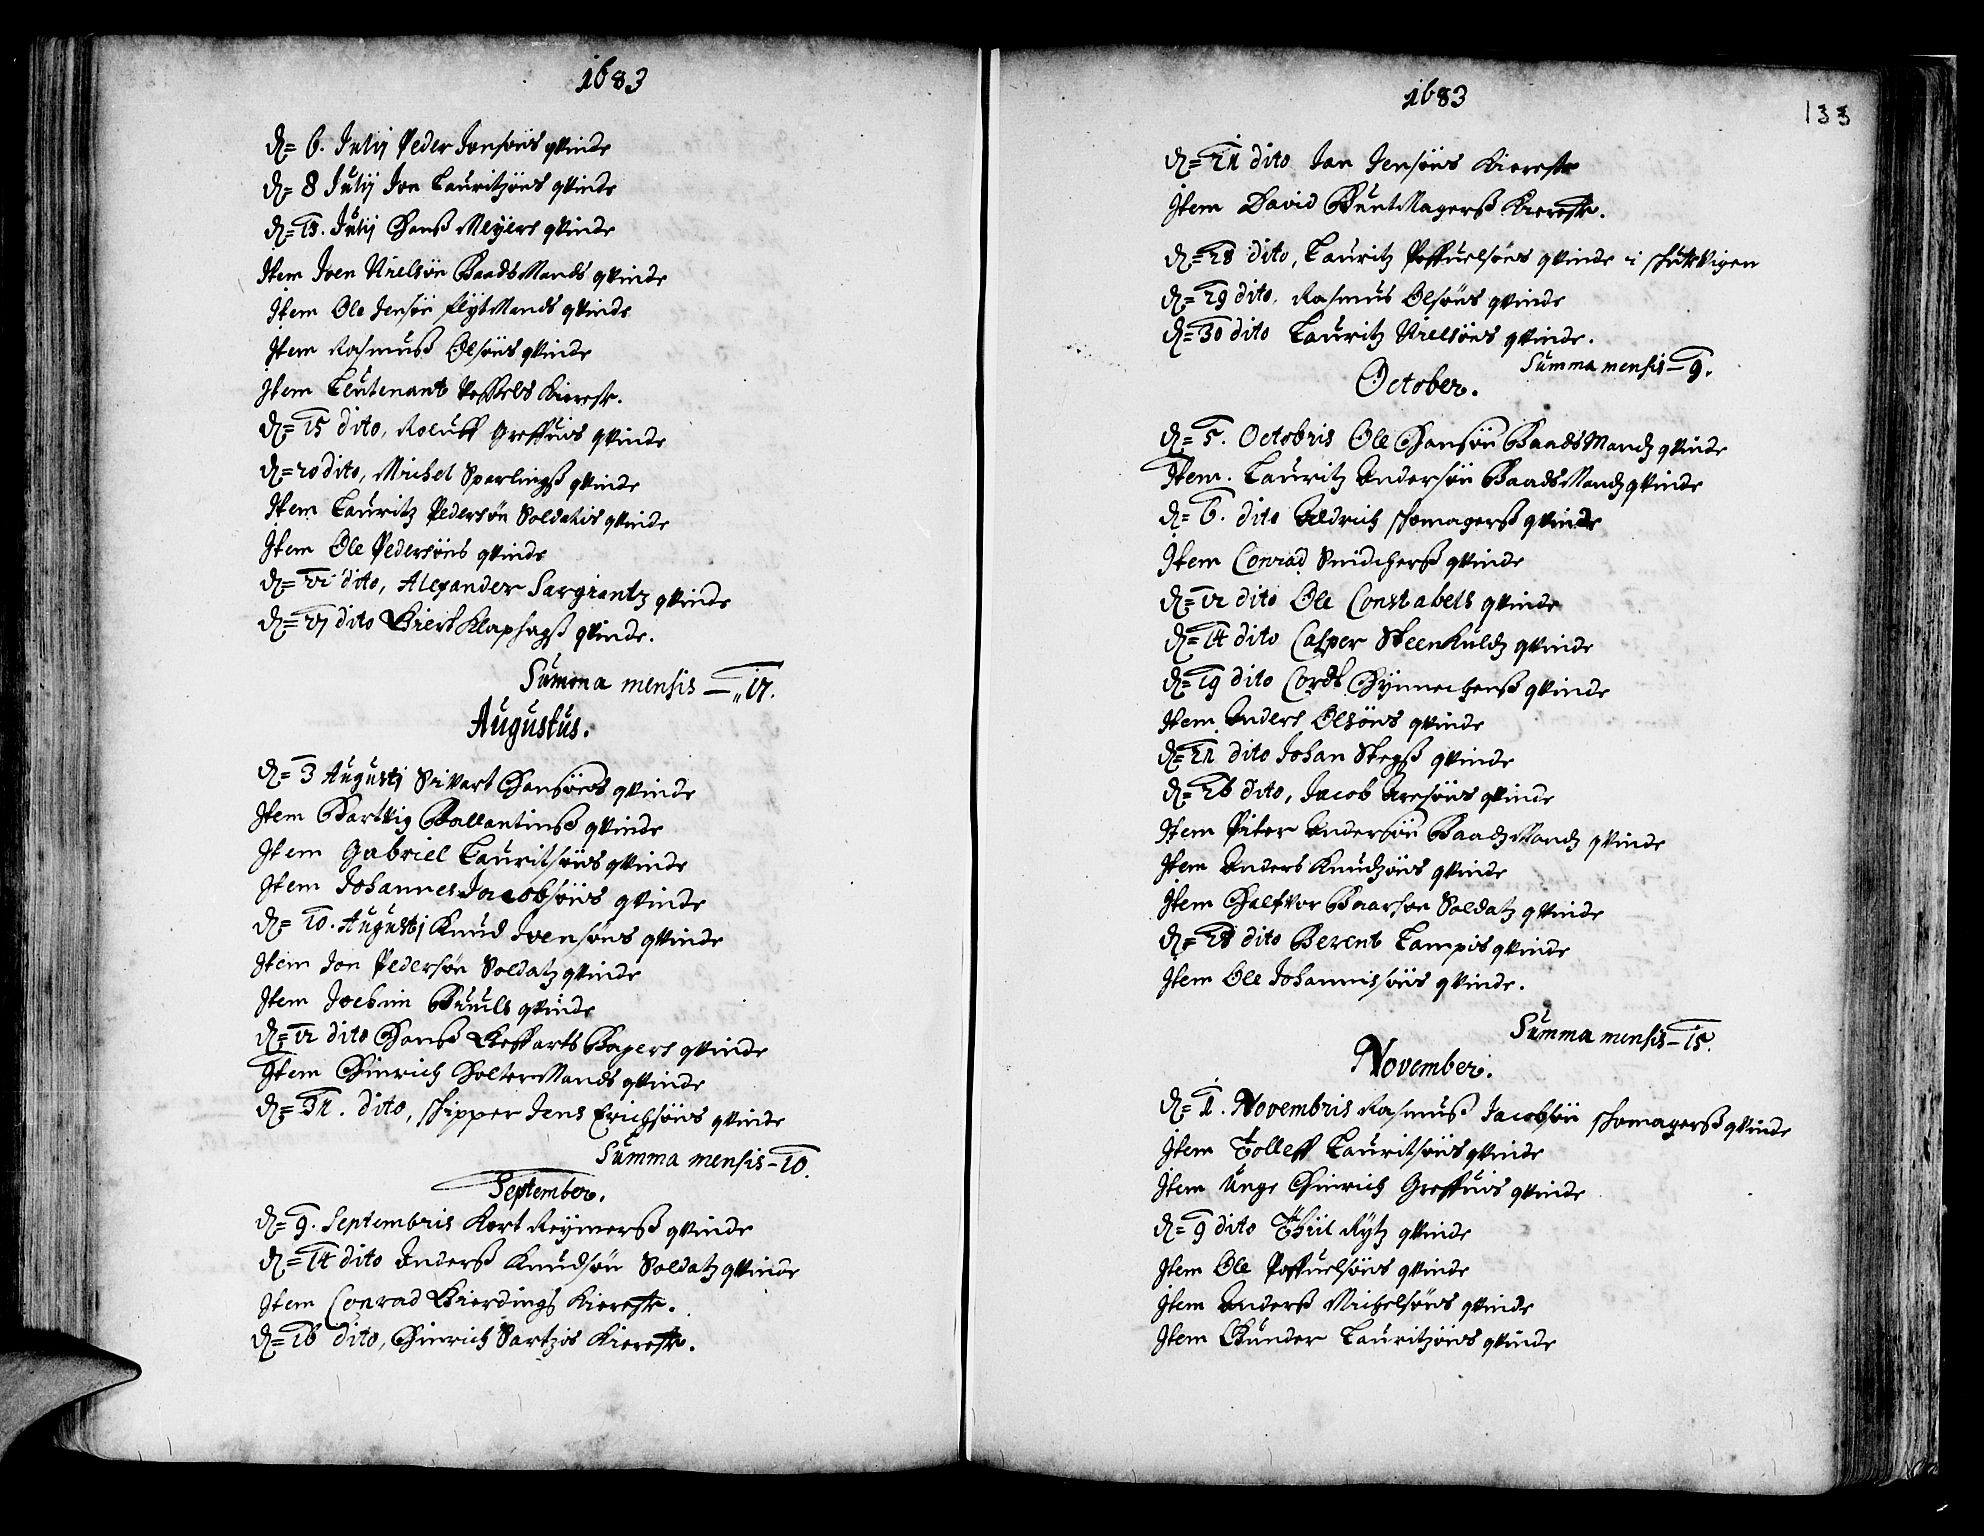 1683
D= 6. Julij Peder Jonsøns qvinde
D= 8 Julij Jon Lauritzøns qvinde
D= 13. Julij Hanß Meyers qvinde
Item Iven Nielsøn BaadsMands qvinde
Item Ole Jensøn flytMands qvinde
Item Rasmuß Olsøns qvinde
Item Leutenant Kiereste.
D= 15 dito, Roluff Greffuus qvinde
D= 20 dito, Michel Sperlingß qvinde
Item Lauritz Pedersøn Soldatis qvinde
Item Ole Pedersøns qvinde
D= 21 dito, Alexander Sargiantz qvinde
D= 27 dito Giert Klaphagß qvinde.
Summa mensis — 17.
Augustus.
D= 3 Augustj Sivart Hansøns qvinde
Item Hartvig Ballantinß qvinde
Item Gabriel Lauritsøns qvinde
Item Johannes Jacobsøns qvinde
D= 10. Augustj Knud Ivensøns qvinde
Item Jon Pedersøn Soldatz qvinde
Item Jochim Buuls qvinde
D= 12 dito Hanß Geffarts Bagers qvinde
Item Hinrich HolterMands qvinde
D= 31. dito, skipper Jens Erichsøns qvinde
Summa mensis - 10.
September.
D= 9. Septembris Kort Reymerß qvinde
D= 14 dito Anderß Knudsøn Soldatz qvinde
Item Conrad Gierdings Kiereste.
D= 16 dito, Hinrich Sartzis Kiereste.
1683
133
D= 21 dito Jan Jensøns Kiereste
Item David BuntMagerß Kiereste.
D= 28 dito, Lauritz Poffuelsøns qvinde i skutevigen
D= 29 dito, Rasmus Olsøns qvinde
D= 30 dito Lauritz Nielsøns qvinde.
Summa mensis - 9.
October.
D= 5. Octobris Ole Hansøn BaadsMandz qvinde
Item. Lauritz Andersøn BaadsMandz qvinde
D= 6. dito Aldrich skomagerß qvinde
Item Conrad Snidcherß qvinde
D= 12 dito Ole Constabels qvinde
D= 14 dito Casper Steenkuldz qvinde
D= 19 dito Cordt qvinde
Item Anders Olsøns qvinde
D= 21 dito Johan Stegß qvinde
D= 26 dito, Jacob Aresøns qvinde
Item Piter Andersøn BaadzMandz qvinde
Item Anders Knudzøns qvinde
Item Halfvor Baarsøn Soldatz qvinde
D= 28 dito Berent Lampis qvinde
Item Ole Johannissøns qvinde.
Summa mensis - 15.
November.
D= 1. Novembris Rasmuß Jacobsøn skomagerß qvinde
Item Tolleff Lauritsøns qvinde
Item Unge Hinrich Greffuus qvinde
D= 9 dito Thiil Rytz qvinde
Item Ole Poffuelsøns qvinde
Item Anderß Michelsøns qvinde
Item Gunder Lauritzøns qvinde